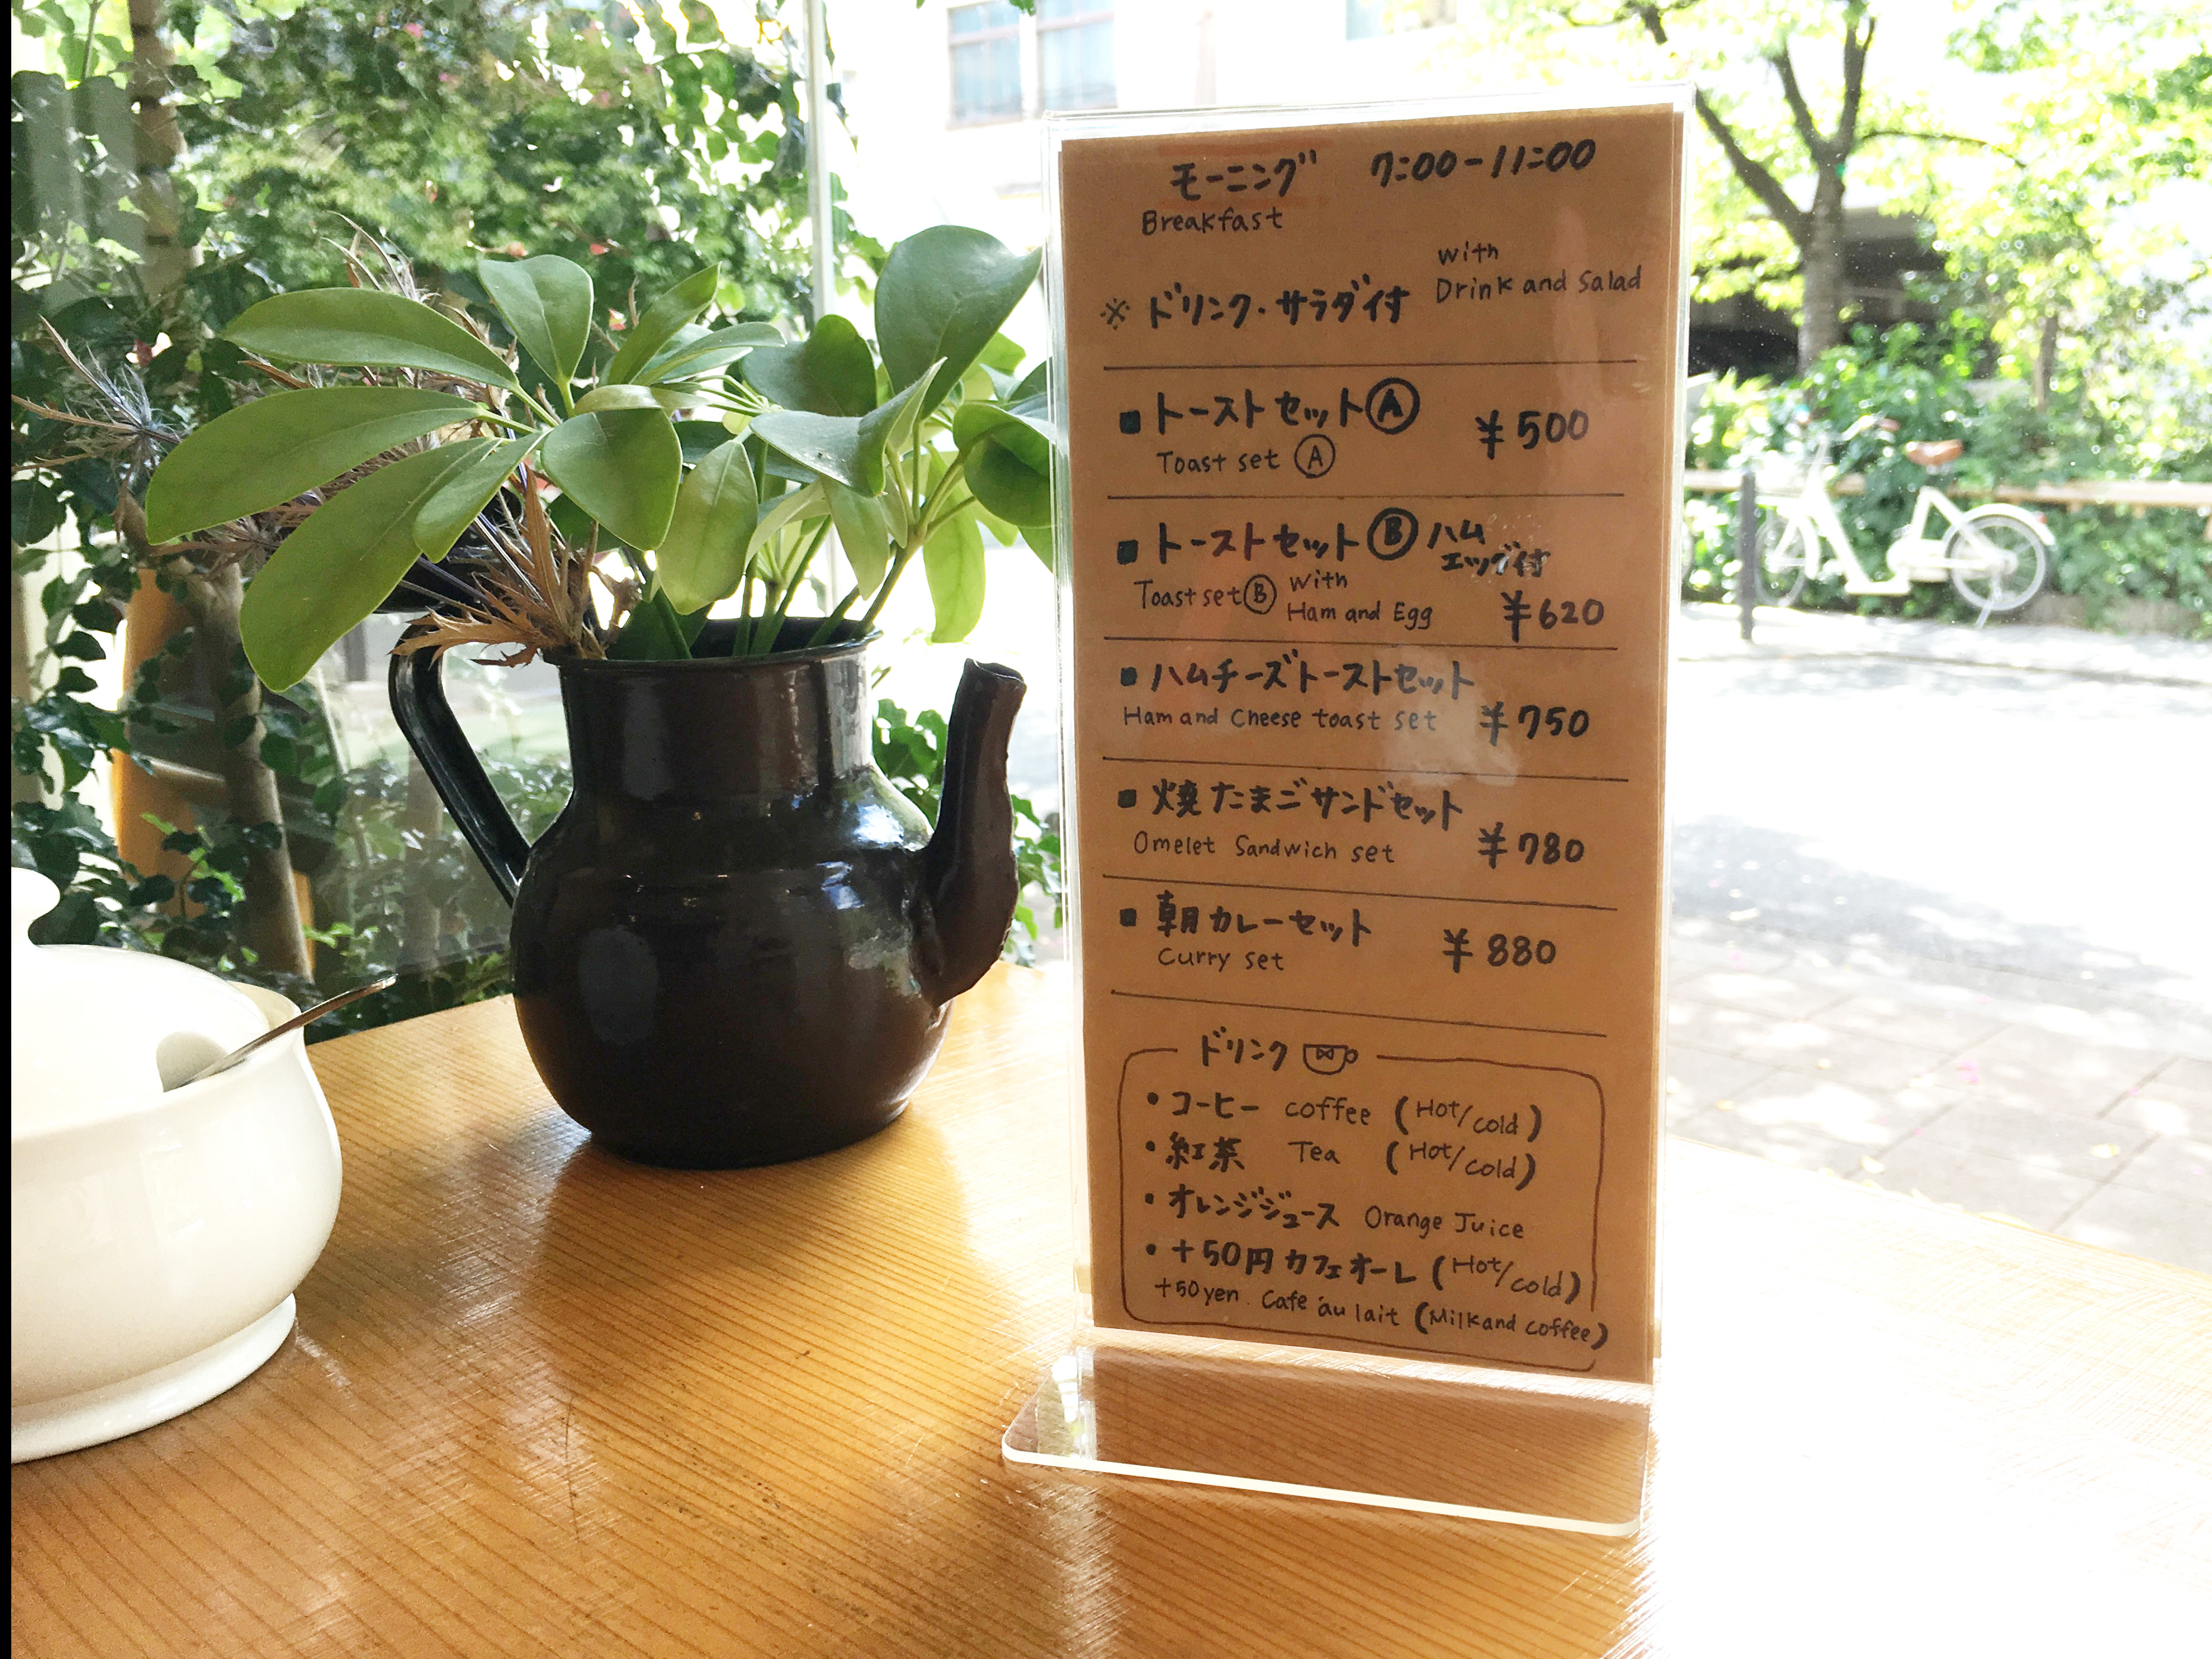 モーニング 7:00-11:00
Breakfast
with
Drink and Salad
※ ドリンク・サラダ付
■ トーストセットⒶ ¥500
Toast set Ⓐ
■ トーストセットⒷ ハム
エッグ付
Toast set Ⓑ with
Ham and Egg ¥620
■ ハムチーズトーストセット
Ham and Cheese toast set ¥750
■ 焼たまごサンドセット
Omelet Sandwich set ¥780
■ 朝カレーセット ¥880
Curry set
ドリンク
・コーヒー coffee (Hot/cold)
・紅茶 Tea (Hot/cold)
・オレンジジュース Orange Juice
・+50円カフェオーレ (Hot/cold)
+50yen. Cafe au lait (Milk and coffee)